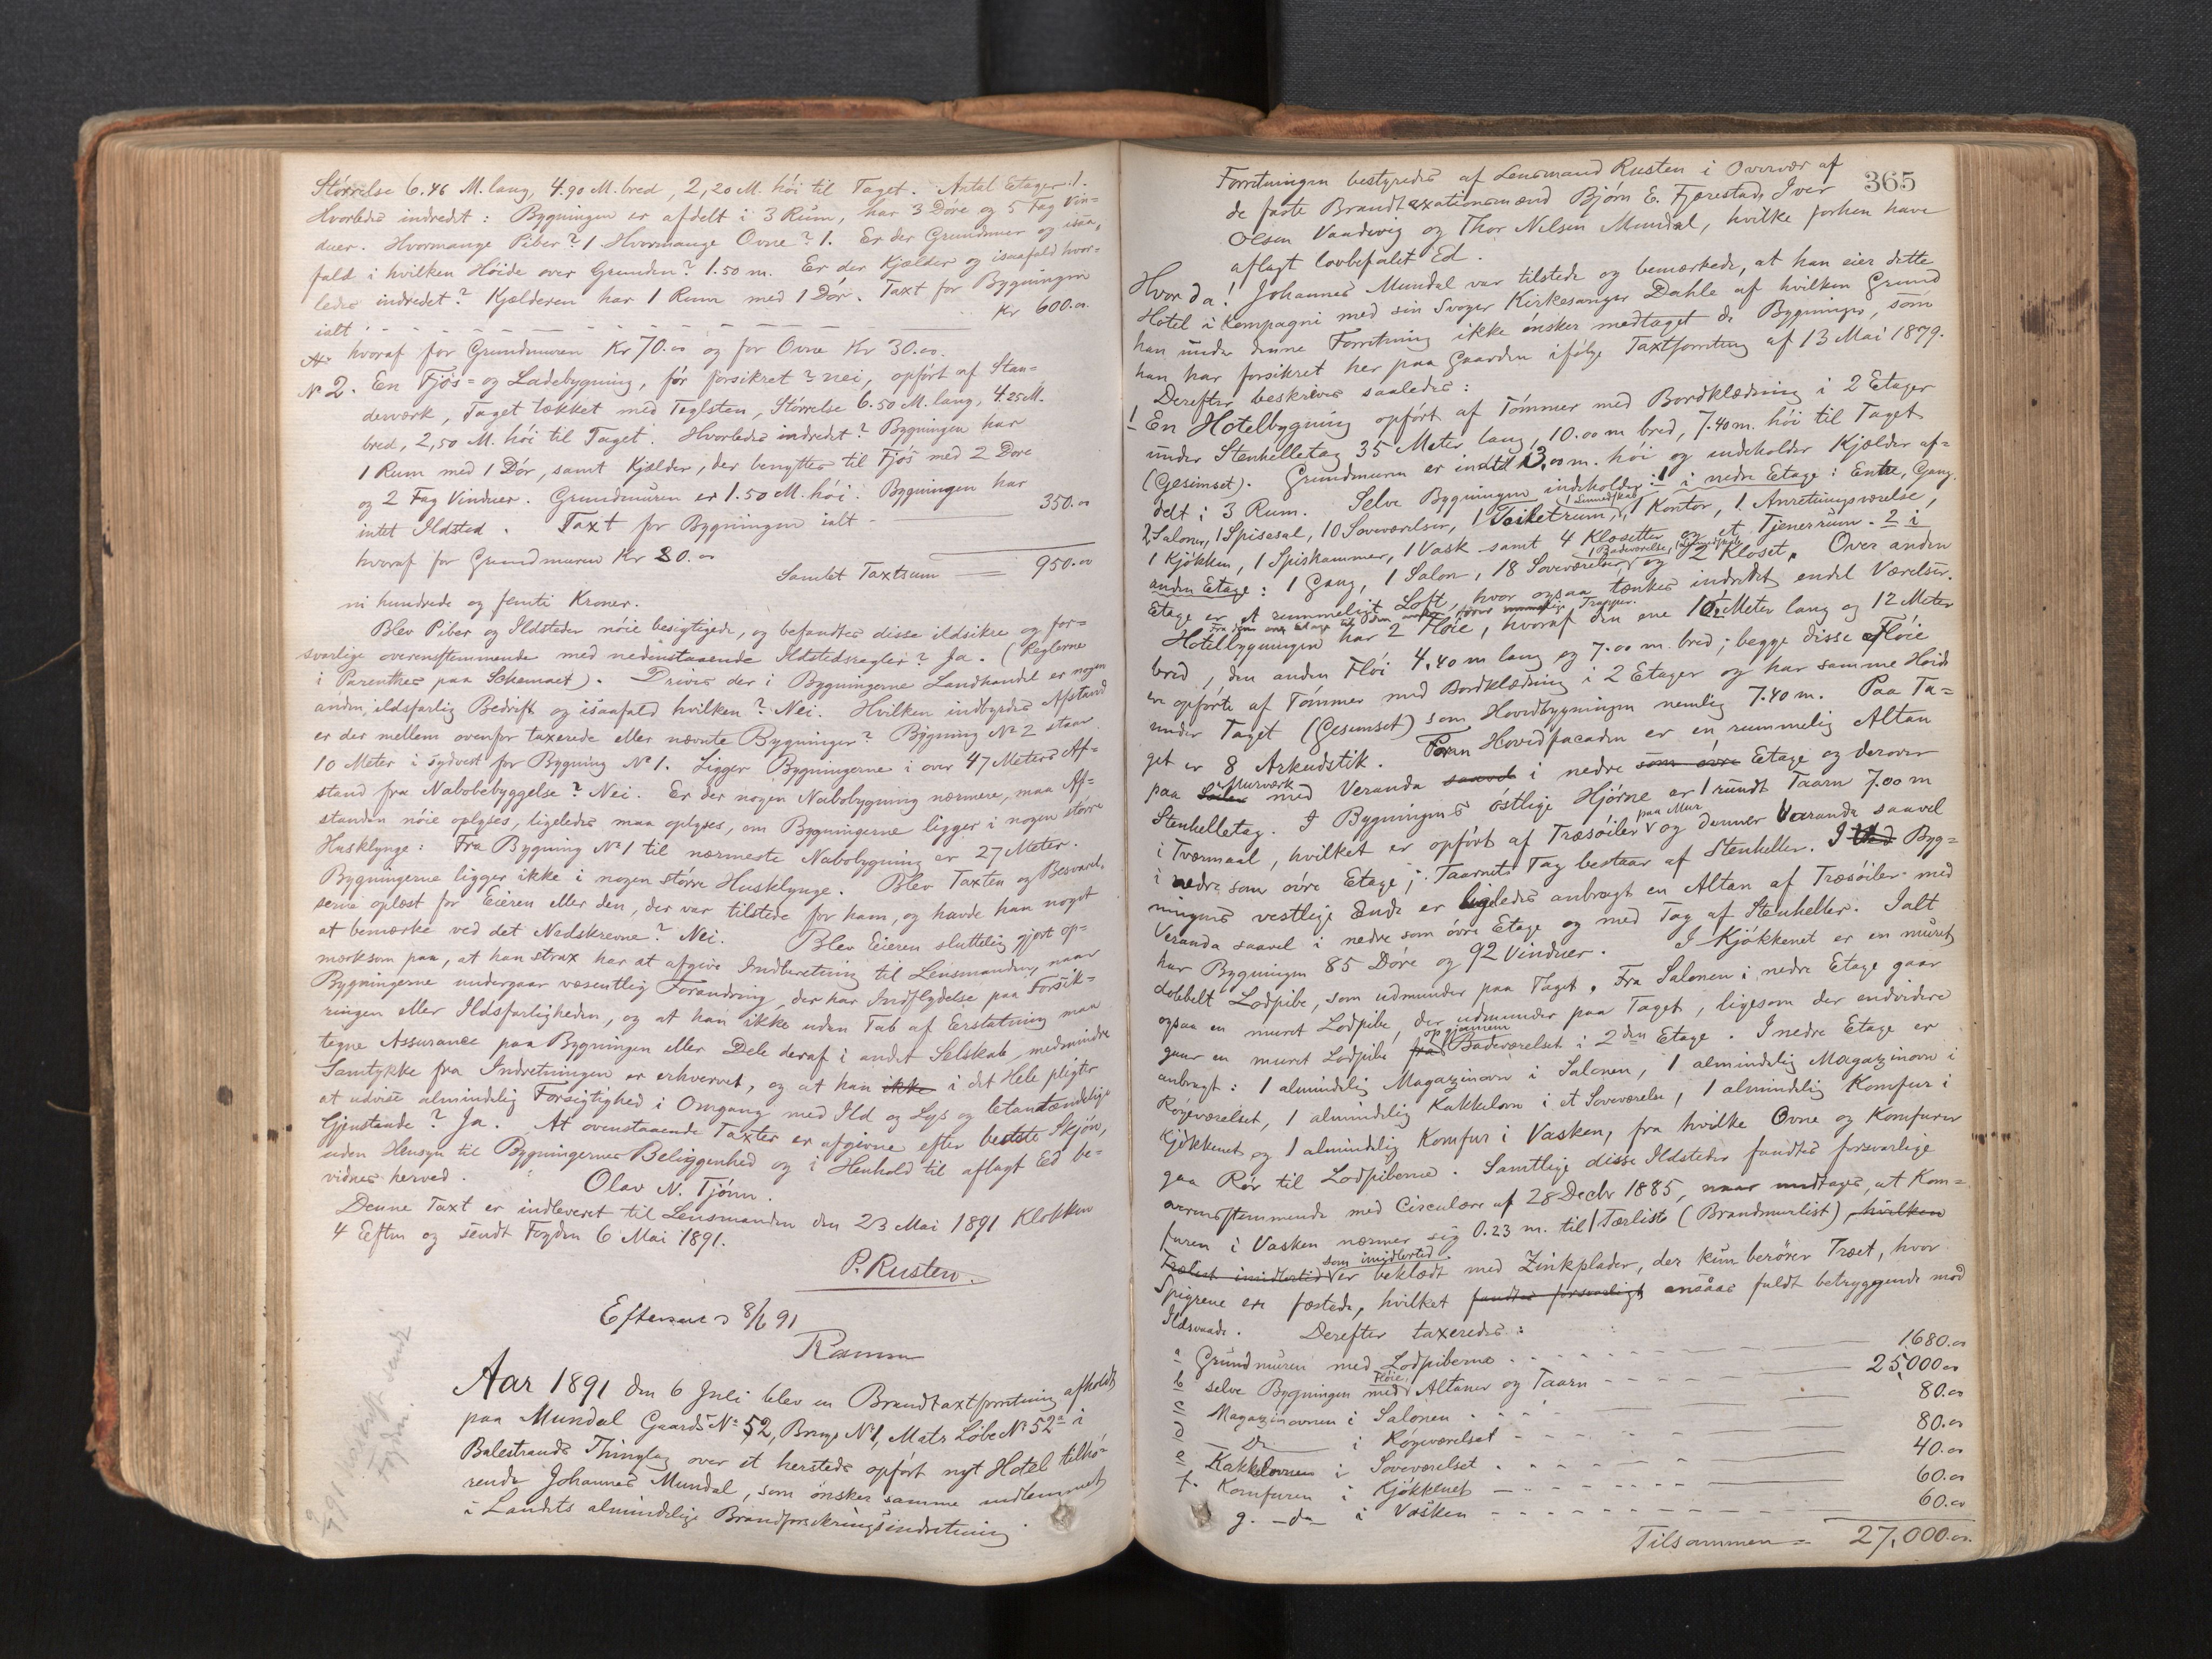 Størrelse 6.46 M. lang, 4.90 M. bred, 2,20 M. høi til Taget. Antal Etager: 1.
Hvorledes indredet: Bygningen er afdelt i 3 Rum, har 3 Døre og 5 Fag Vin=
duer. Hvormange Piber? 1 Hvormange Ovne? 1. Er der Grundmur og isaa=
fald i hvilken Høide over Grunden? 1.50 m. Er der Kjælder og isaafald hvor=
ledes indredet? Kjælderen har 1 Rum med 1 Dør. Taxt for Bygningen
ialt Kr 600.00
hvoraf for Grundmuren Kr 70.00 og for Ovne Kr 30.00.
No 2. En Fjøs= og Ladebygning, før forsikret? nei, opført af Stan=
derværk, Taget tækket med Teglsten, Størrelse 6.50 M. lang, 4.25 M.
bred, 2,50 M. høi til Taget. Hvorledes indredet? Bygningen har
1 Rum med 1 Dør, samt Kjælder, der benyttes til Fjøs med 2 Døre
og 2 Fag Vinduer. Grundmuren er 1.50 M. høi. Bygningen har
intet Ildsted. Taxt for Bygningen ialt - 350.00
hvoraf for Grundmuren Kr 80.00
Samlet Taxtsum = 950.00
ni hundrede og femti Kroner.
Blev Piber og Ildsteder nøie besigtigede, og befandtes disse ildsikre og for=
svarlige overensstemmende med nedenstaaende Ildstedsregler? Ja. (Reglerne
i Parenthes paa Schemaet). Drives der i Bygningerne Landhandel er nogen
anden, ildsfarlig Bedrift og isaafald hvilken? Nei. Hvilken indbyrdes Afstand
er der mellem ovenfor taxerede eller nævnte Bygninger? Bygning No 2 staar
10 Meter i sydvest for Bygning No 1. Ligger Bygningerne i over 47 Meters Af=
stand fra Nabobebyggelse? Nei. Er der nogen Nabobygning nærmere, maa Af=
standen nøie oplyses, ligeledes maa oplyses, om Bygningerne ligger i nogen større
Husklynge: Fra Bygning No 1 til nærmeste Nabobygning er 27 Meter.
Bygningerne ligger ikke i nogen større Husklynge. Blev Taxten og Besvarel,
serne oplæst for Eieren eller den, der var tilstede for ham, og havde han noget
at bemærke ved det Nedskrevne? Nei. Blev Eieren sluttelig gjort op=
mærksom paa, at han strax har at afgive Indberetning til Lensmanden, naar
Bygningerne undergaar væsentlig Forandring, der har Indflydelse paa Forsik=
ringen eller Ildsfarligheden, og at han ikke uden Tab af Erstatning maa
tegne Assurance paa Bygningen eller Dele deraf i andet Selskab, medmindre
Samtykke fra Indretningen er erhvervet, og at han ikke i det Hele pligter
at udvise almindelig Forsigtighed i Omgang med Ild og Lys og letantændelige
Gjenstande? Ja. At ovenstaaende Taxter er afgivne efter bedste Skjøn,
uden Hensyn til Bygningernes Beliggenhed og i Henhold til aflagt Ed be=
vidnes herved. Olav N. Tjønn.
Denne Taxt er indleveret til Lensmanden den 23 Mai 1891 Klokken
4 Eftm og sendt Fogden 6 Mai 1891.
P. Rusten.
8/6 91
Ramm
Aar 1891 den 6 Juli blev en Brandtaxtforretning afholdt
paa Mundal Gaards No 52, Brugs No 1, Matr Løbe No 52a i
Balestrands Thinglag over et hersteds opført nyt Hotel tilhø=
rende Johannes Mundal, som ønsker samme indlemmet
i Landets almindelige Brandforsikringsindretning
365
Forretningen bestyredes af Lensmand Rusten i Overvær af
de faste Brandtaxationsmænd Bjørn E. Fjærestad, Iver
Olsen Vaadvig og Thor Nilsen Mundal, hvilke forhen have
aflagt lovbefalet Ed.
Hvor da! Johannes Mundal var tilstede og bemærkede, at han eier dette
Hotel i Kompagni med sin Svoger Kirkesanger Dahle af hvilken Grund
han under denne Forretning ikke ønsker medtaget de Bygninger, som
han har forsikret her paa Gaarden ifølge Taxtforretning af 13 Mai 1879.
Derefter beskrives saaledes:
1 En Hotelbygning opført af Tømmer med Bordklædning i 2 Etager
under Stenhelletag 35 Meter lang, 10.00 m bred, 7.40 m. høi til Taget
(Gesimset). Grundmuren er indtil 3,00 m. høi og indeholder Kjælder af=
delt i 3 Rum. Selve Bygningen indeholder: 1 i nedre Etage: Entre, Gang
2 Saloner, 1 Spisesal, 10 Soveværelser, 1 Toiletrum, 1 Linnedskab, 1 Kontor, 1 Anretningsværelse,
1 Kjøkken, 1 Spiskammer, 1 Vask samt 4 Klosetter og et Tjenerrum. 2 i
anden Etage: 1 Gang, 1 Salon, 18 Soveværelser, 1 Badeværelse, og 2 Kloset. Over anden
Etage er et rummeligt Loft, hvor ogsaa tænkes indredet endel Værelser.
Hotelbygningen har 2 Fløie, hvoraf den ene 10½ Meter lang og 12 Meter
bred, den anden Fløi 4.40 m lang og 7.00 m. bred; begge disse Fløie
er opførte af Tømmer med Bordklædning i 2 Etager og har samme Høide
under Taget (Gesimset) som Hovedbygningen nemlig 7.40 m. Paa Ta=
get er 8 Arkudstik. Foran Hovedfacaden er en rummelig Altan
paa Murværk med Veranda saavel i nedre som øvre Etage og derover
Stenhelletag. I Bygningens østlige Hjørne er 1 rundt Taarn 7.00 m
i Tværmaal, hvilket er opført af Træsøiler paa Mur og danner Veranda saavel
i nedre som øvre Etage; Taarnets Tag bestaar af Stenheller. I Byg=
ningens vestlige Ende er ligeledes anbragt en Altan af Træsøiler med
Veranda saavel i nedre som øvre Etage og med Tag af Stenheller. Ialt
har Bygningen 85 Døre og 92 Vinduer. I Kjøkkenet er en muret
dobbelt Lodpibe, som udmunder paa Taget. Fra Salonen i nedre Etage gaar
ogsaa en muret Lodpibe, der udmunder paa Taget, ligesom der endvidere
gaar en muret Lodpibe fra opgjennem Badeværelset i 2den Etage. I nedre Etage er
anbragt: 1 almindelig Magazinovn i Salonen, 1 almindelig Magazinovn i
Røgeværelset, 1 almindelig Kakkelovn i et Soveværelse, 1 almindelig Komfur i
Kjøkkenet og 1 almindelig Komfur i Vasken, fra hvilke Ovne og Komfurer
gaa Rør til Lodpiberne. Samtlige disse Ildsteder fandtes forsvarlige
overensstemmende med Circulære af 28 Decbr 1885, naar undtages, at Kom=
furen i Vasken nærmer sig 0.23 m. til 1 Tærliste (Brandmurlist), hvilken
Trælist imidlertid som imidlertid er beklædt med Zinkplader, der kun berører Træet, hvor
Spigrene ere fæstede, hvilket fandtes forsvarligt ansaaes fuldt betryggende mod
Ildsvaade. Derefter taxeredes:
a Grundmuren med Lodpiberne 1680.00
b selve Bygningen med Fløie, Altaner og Taarn 25,000 00
c Magazinovnen i Salonen 80.00
d Do i Røgeværelset 80.00
e Kakkelovnen i Soveværelset 40.00
f. Komfuren i Kjøkkenet 60.00
g. -do- i Vasken 60.00
Tilsammen = 27,000.00.